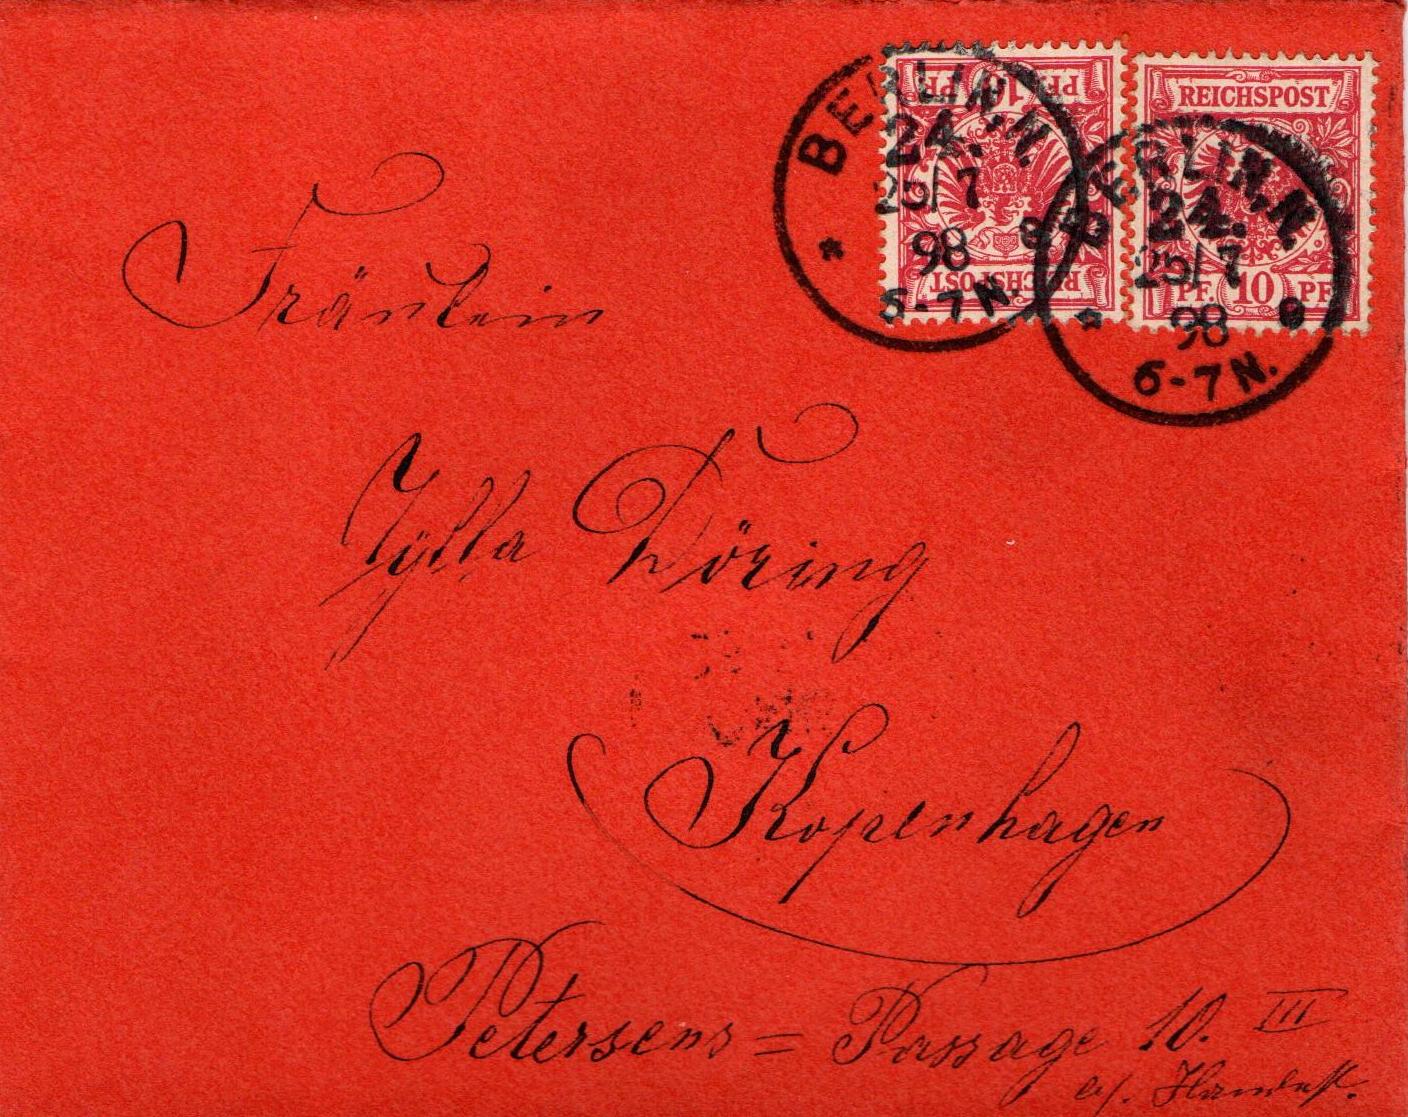 BERLIN, N.
24.
25/7
98
6-7N.
PF 10 PF
REICHSPOST
BERLIN, N.
24.
25/7
98
6-7N.
REICHSPOST
PF 10 PF
Fräulein
Döring
Kopenhagen
Petersens = Passage 10. III